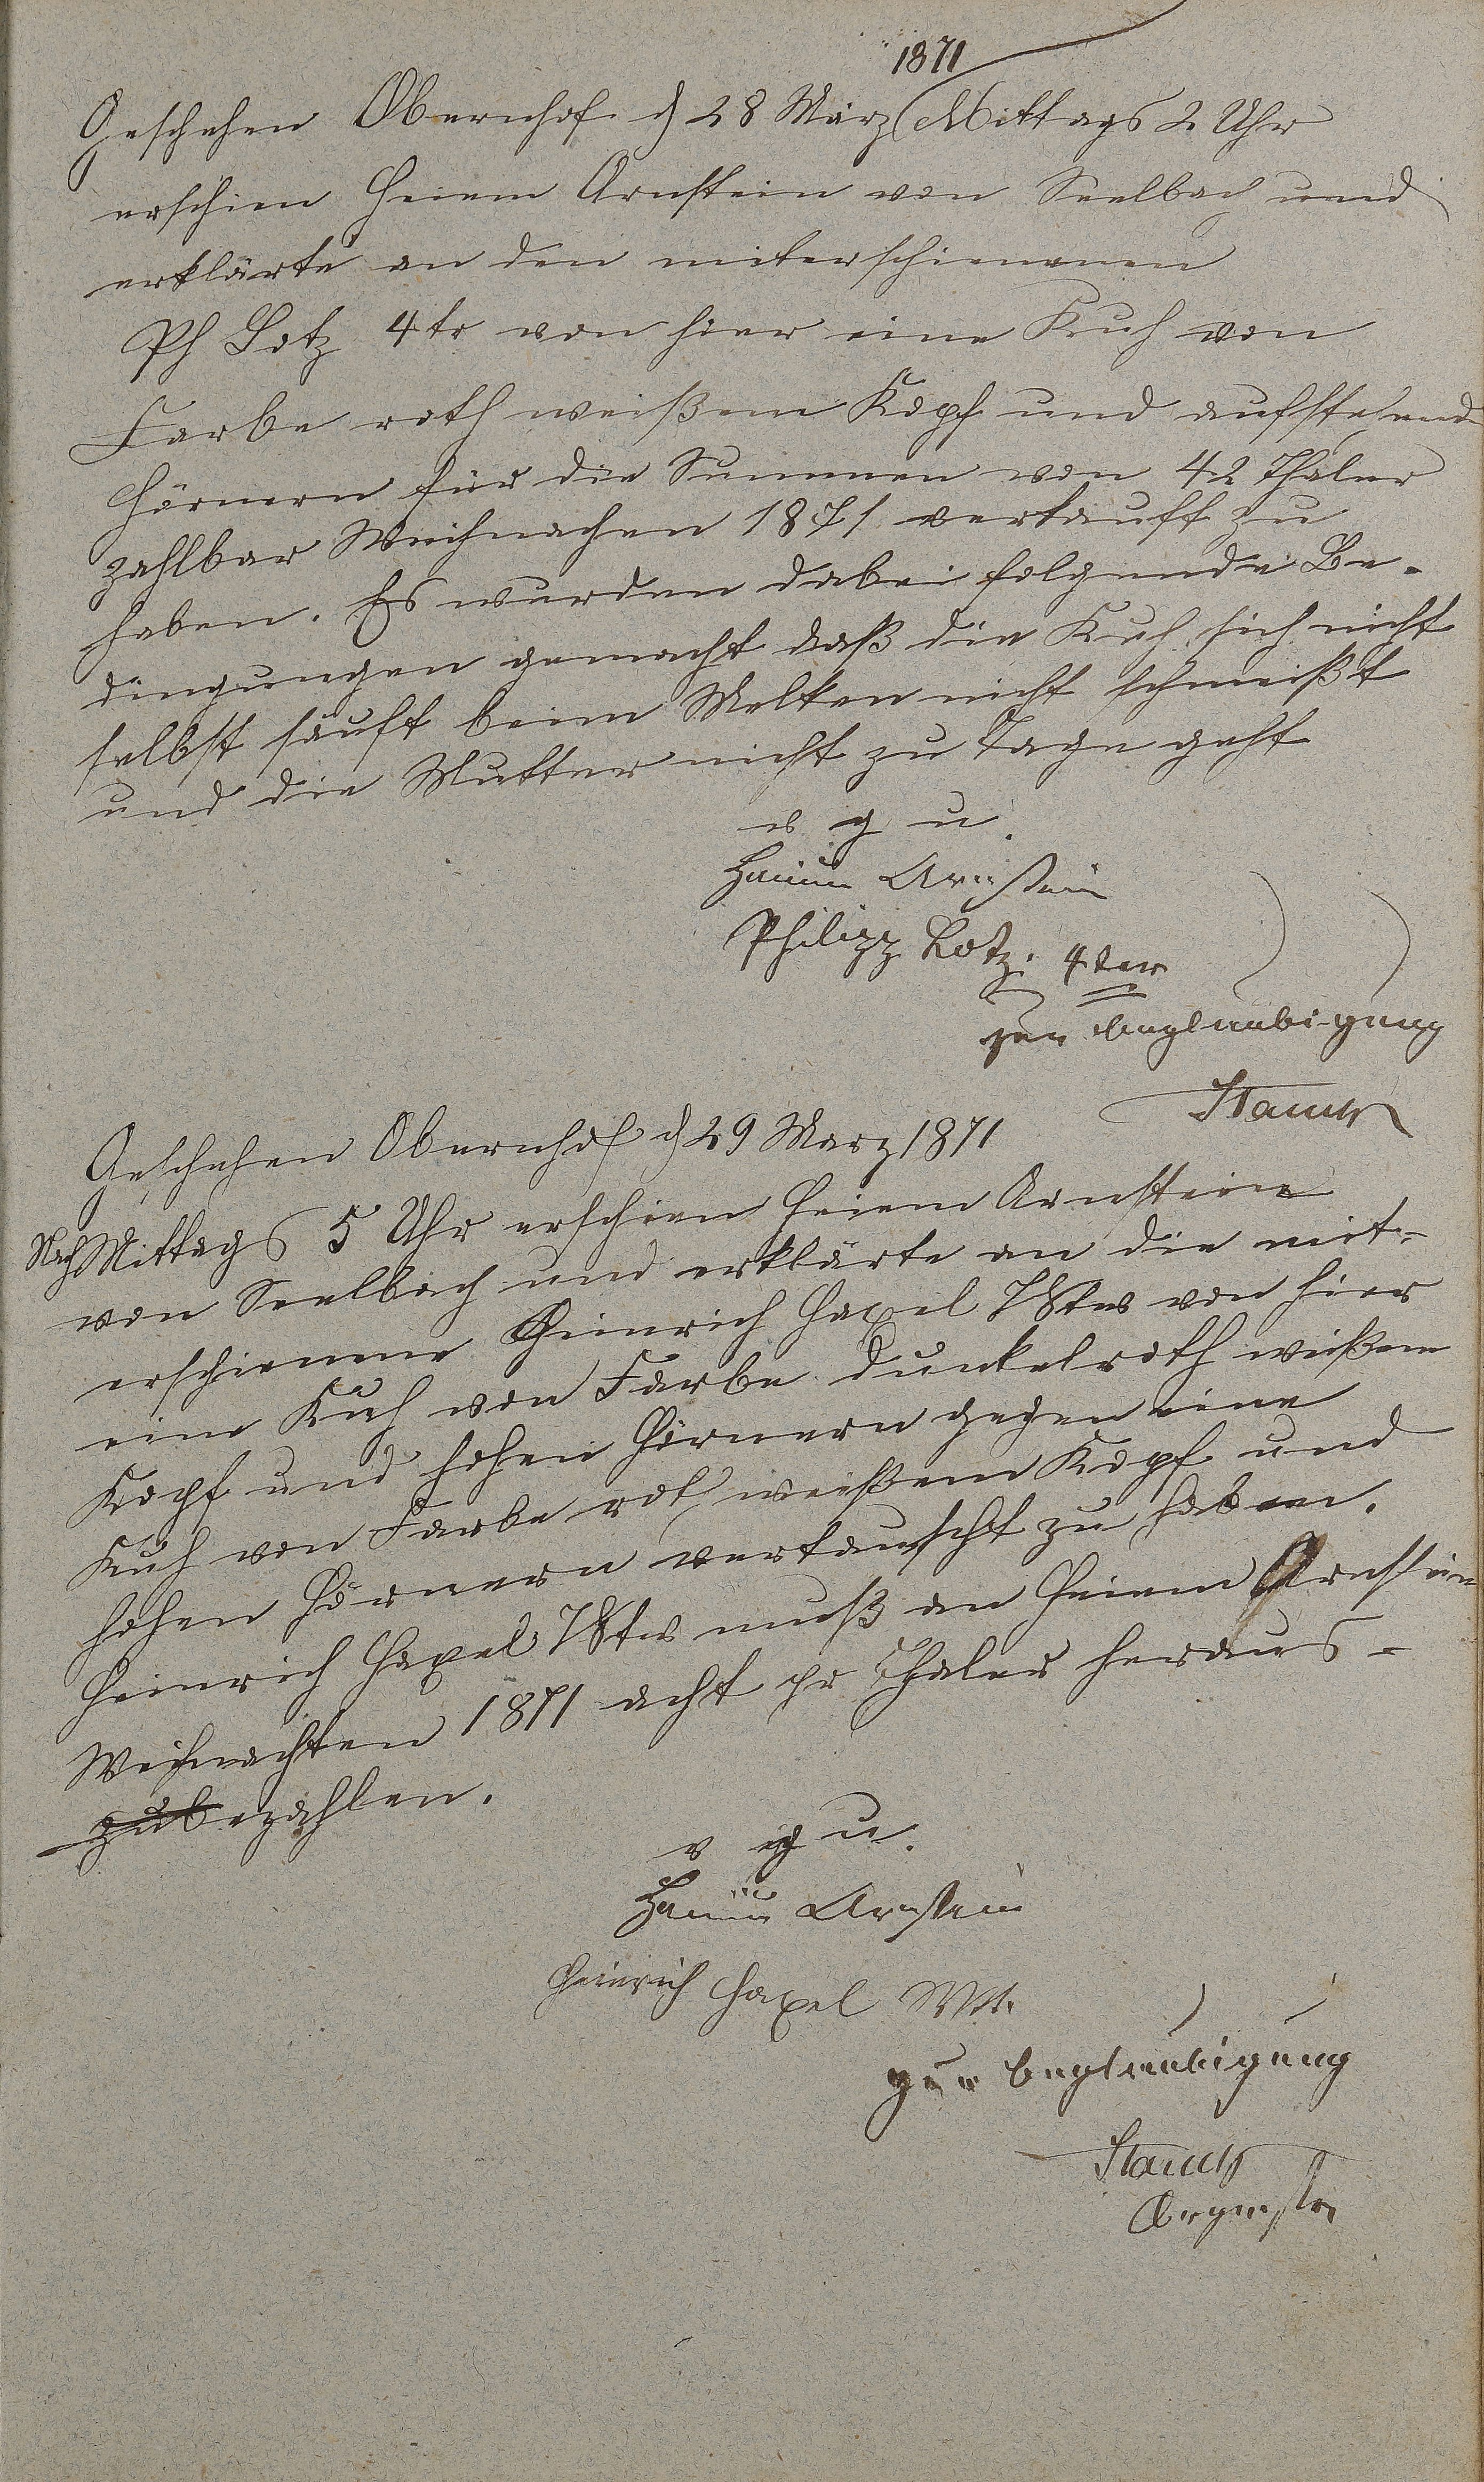 1871
Geschehen Obernhof d 28 März Mittags 2 Uhr
erschien Heium Arnstein von Seelbach und
erklärte an den miterschienenen
Ph Lotz 4tr von hier eine Kuh von
Farbe roth weißem Kopf und aufstehend
Hörnern für die Summen von 42 Thaler
zahlbar Weihnachen 1871 verkauft zu
haben. Es wurden dabei folgende Be-
dingungen gemacht daß die Kuh sich nicht
selbst säuft beim Melken nicht schmeißt
und die Mutter nicht zu Tage geht
v g u.
Arnstein
Philipp Lotz. 4ter
zur beglaubigung
Geschehen Obernhof d 29 Marz 1871
Nach Mittags 5 Uhr erschien Heium Arnstein
von Seelbach und erklärte an die mit-
erschienene Heinrich Haxel von hier
eine Kuh von Farbe dunkelroth weißem
Kopf und hohen Hörnern gegen eine
Kuh von Farbe rot weißem Kopf und
hohen Hörnern vertauscht zu haben.
Heinrich Haxel muß an Heium Arnstein
Weihnachten 1871 acht pr Thaler heraus-
zubezahlen.
v g u.
Arnstein
Heinrich Haxel Wtt.
zur beglaubigung